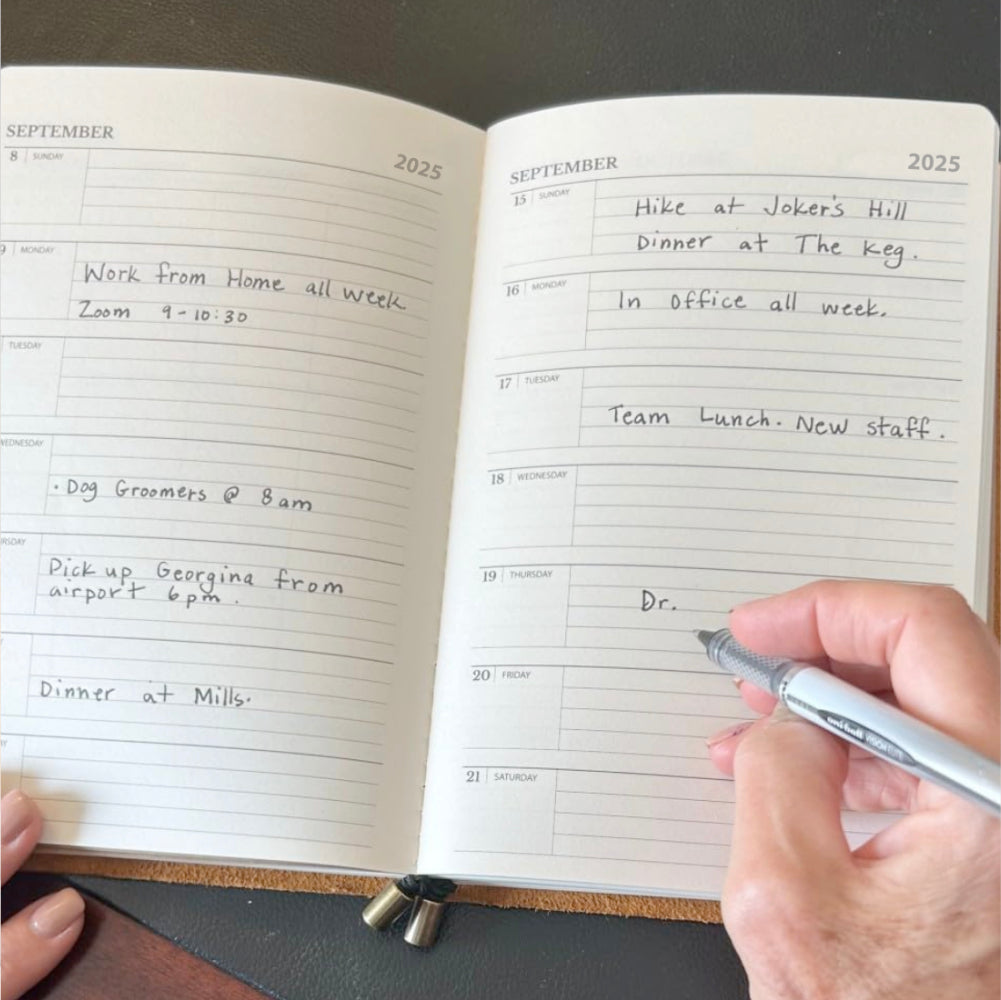 SEPTEMBER
2025
8 SUNDAY
9 MONDAY
Work from Home all week
Zoom 9-10:30
TUESDAY
WEDNESDAY
• Dog Groomers @ 8am
RSDAY
Pick up Georgina from
airport 6pm.
Dinner at Mills.
AY
SEPTEMBER
2025
15 SUNDAY
Hike at Joker's Hill
Dinner at The Keg.
16 MONDAY
In office all week.
17 TUESDAY
Team Lunch. New staff.
18 WEDNESDAY
19 THURSDAY
Dr.
20 FRIDAY
21 SATURDAY
uni-ball VISION ELITE